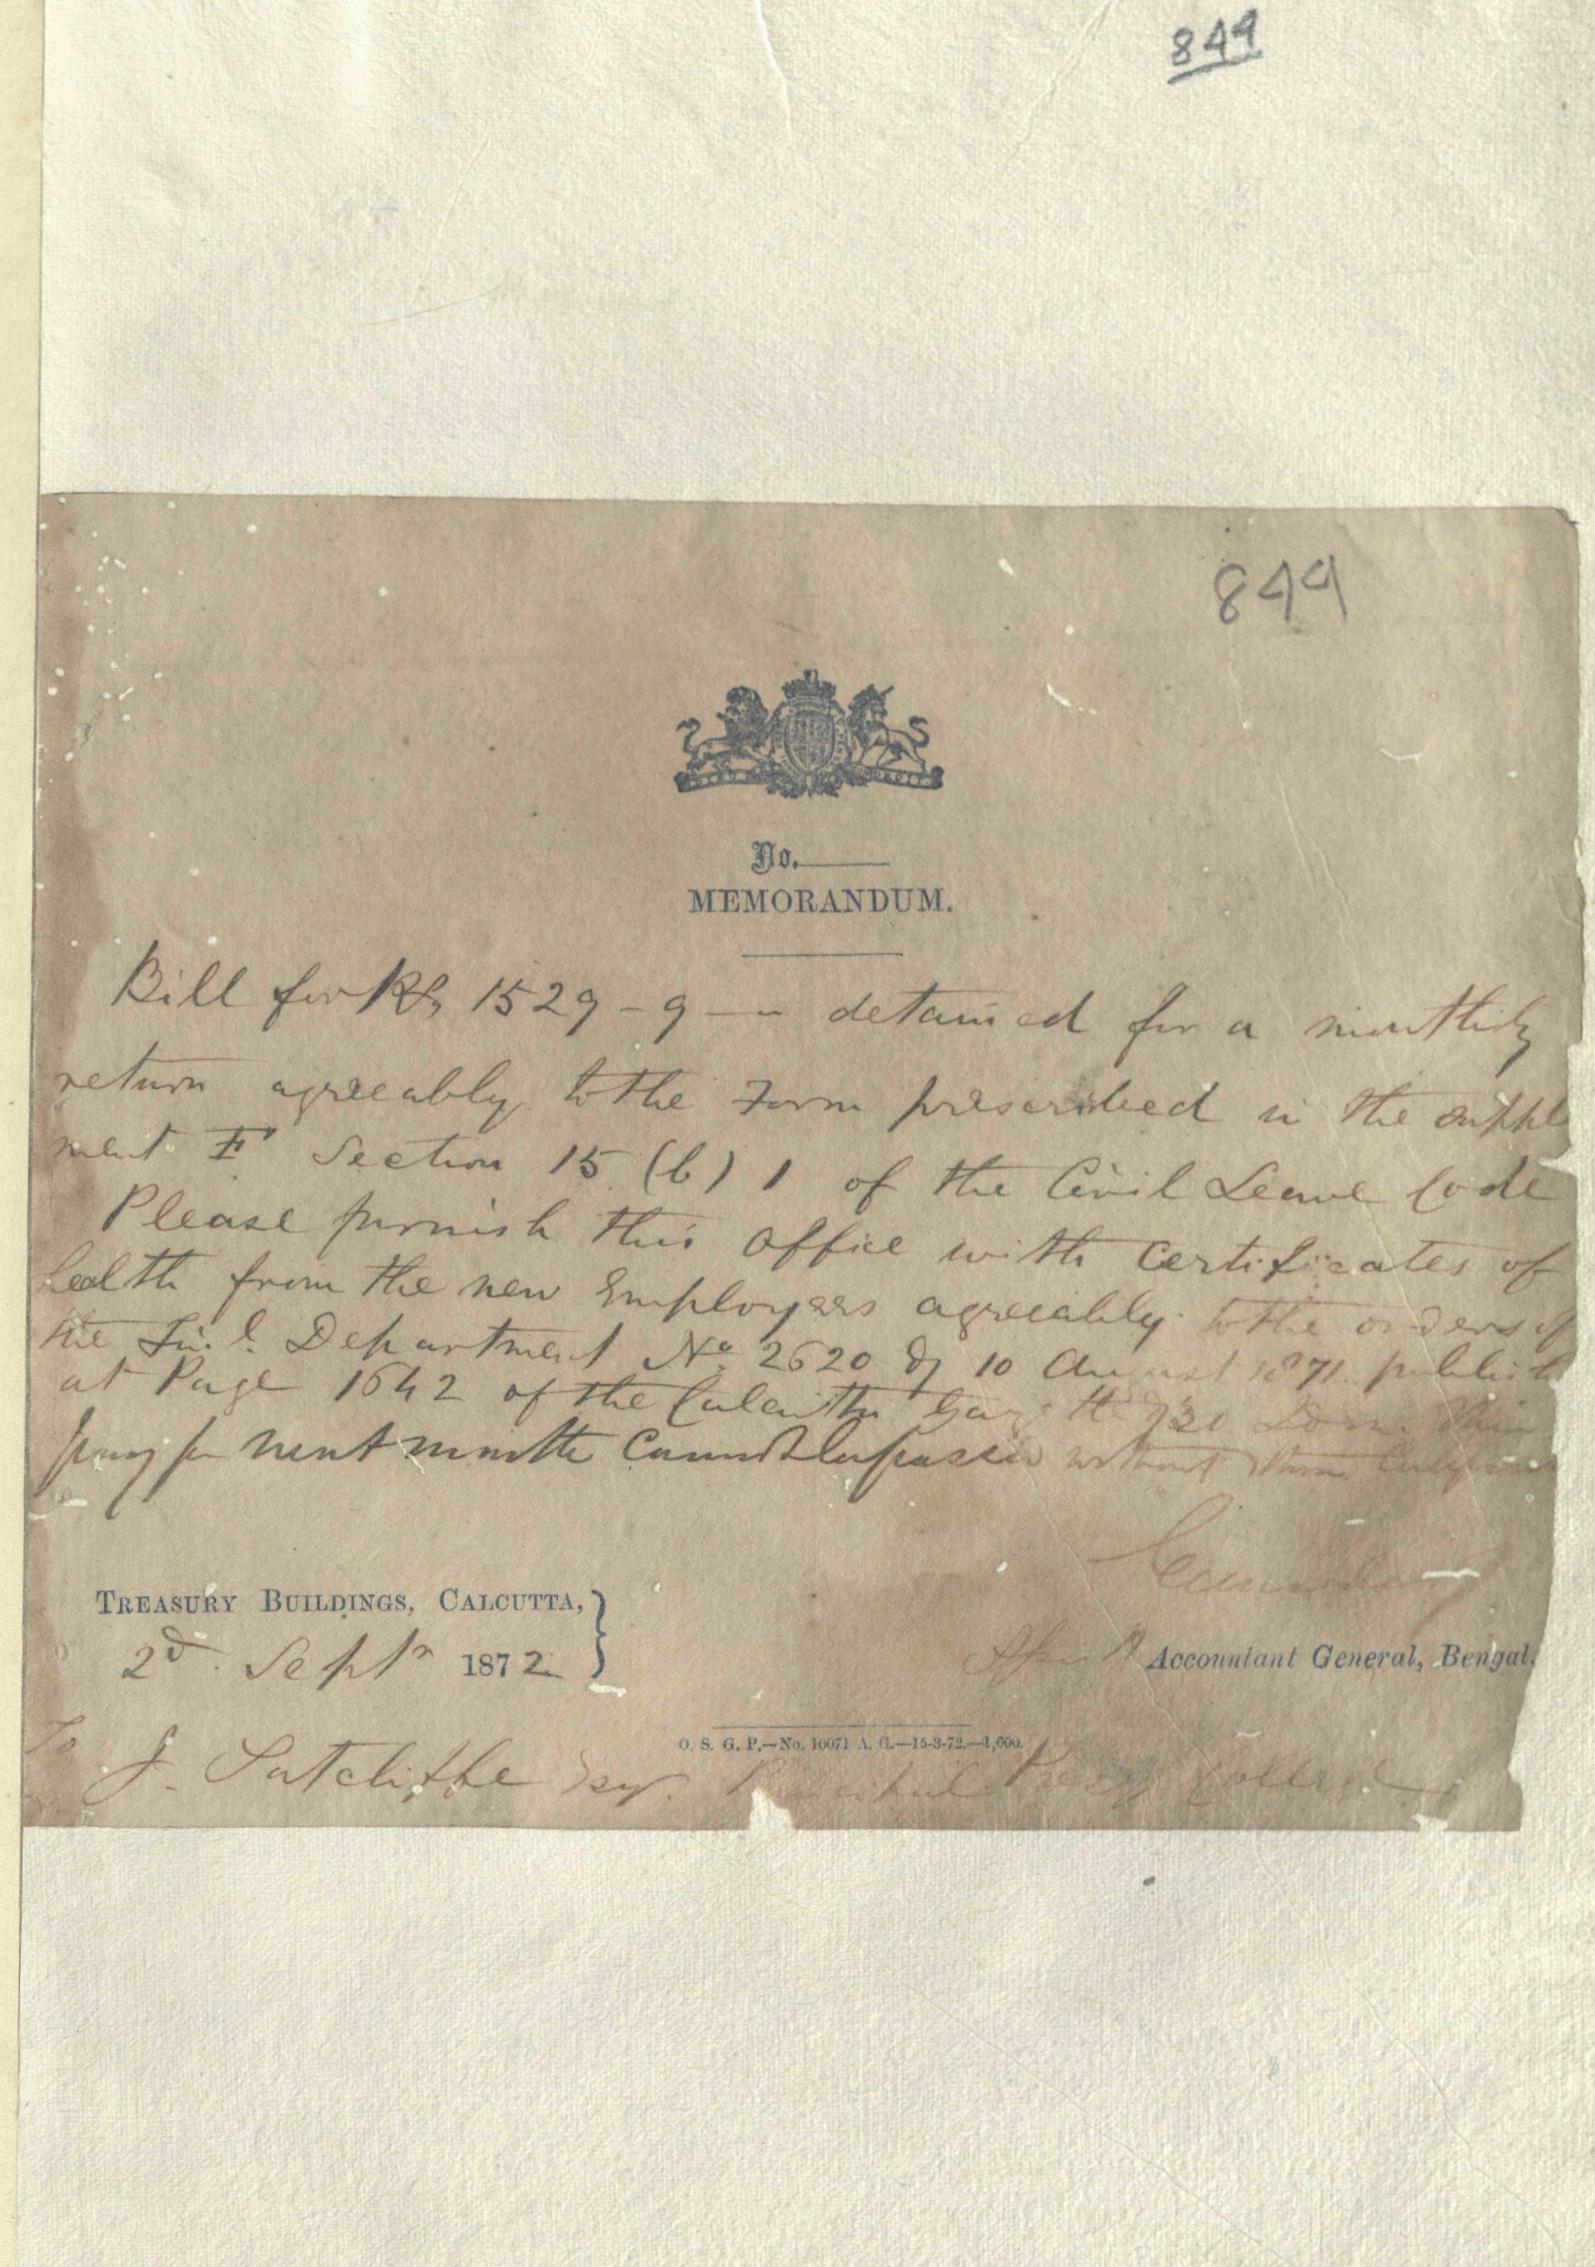 849
849
No.
MEMORANDUM.
Bill for Rs 1529 - 9 - " detained for a monthly
return agreeably to the Form prescribed in the supple
ment F Section 15 (b) 1 of the Civil Leave Code
Please furnish this Office with certificates of
health from the new Employees agreeably to the orders of
the Finl. Department No. 2620 of 10 August 1871 publish
at Page 1642 of the Calcutta Gazette Their
pay for next month cannot be passed without them
TREASURY BUILDINGS, CALCUTTA,
2d Septr 1872
Accountant General, Bengal.
O. S. G. P.—No. 10071 A. G.—15-3-72.—1,600.
To
J. Sutcliffe Esqr. Principal Presy College